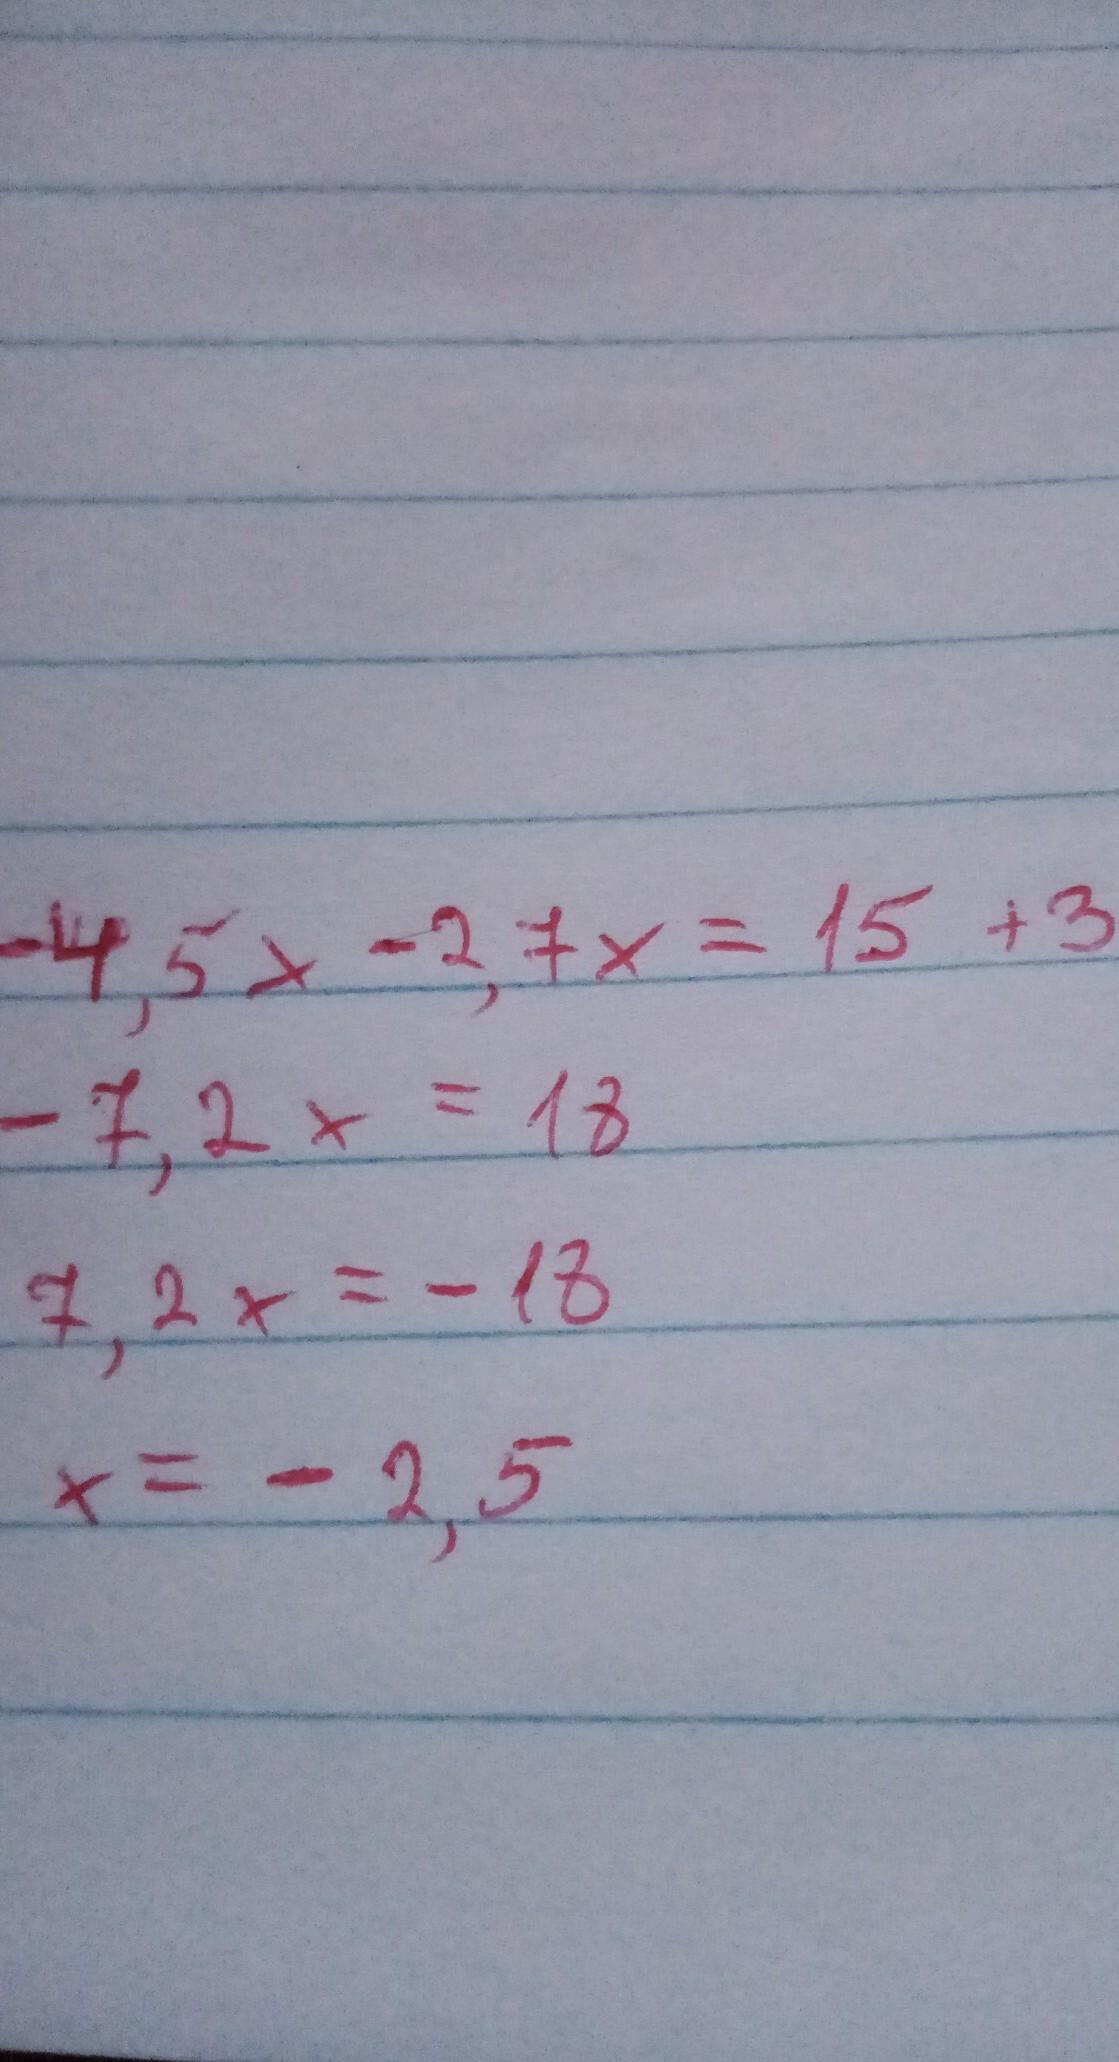 -4,5x -2,7x = 15 +3
- 7,2x = 18
7,2x = - 18
x = - 2,5